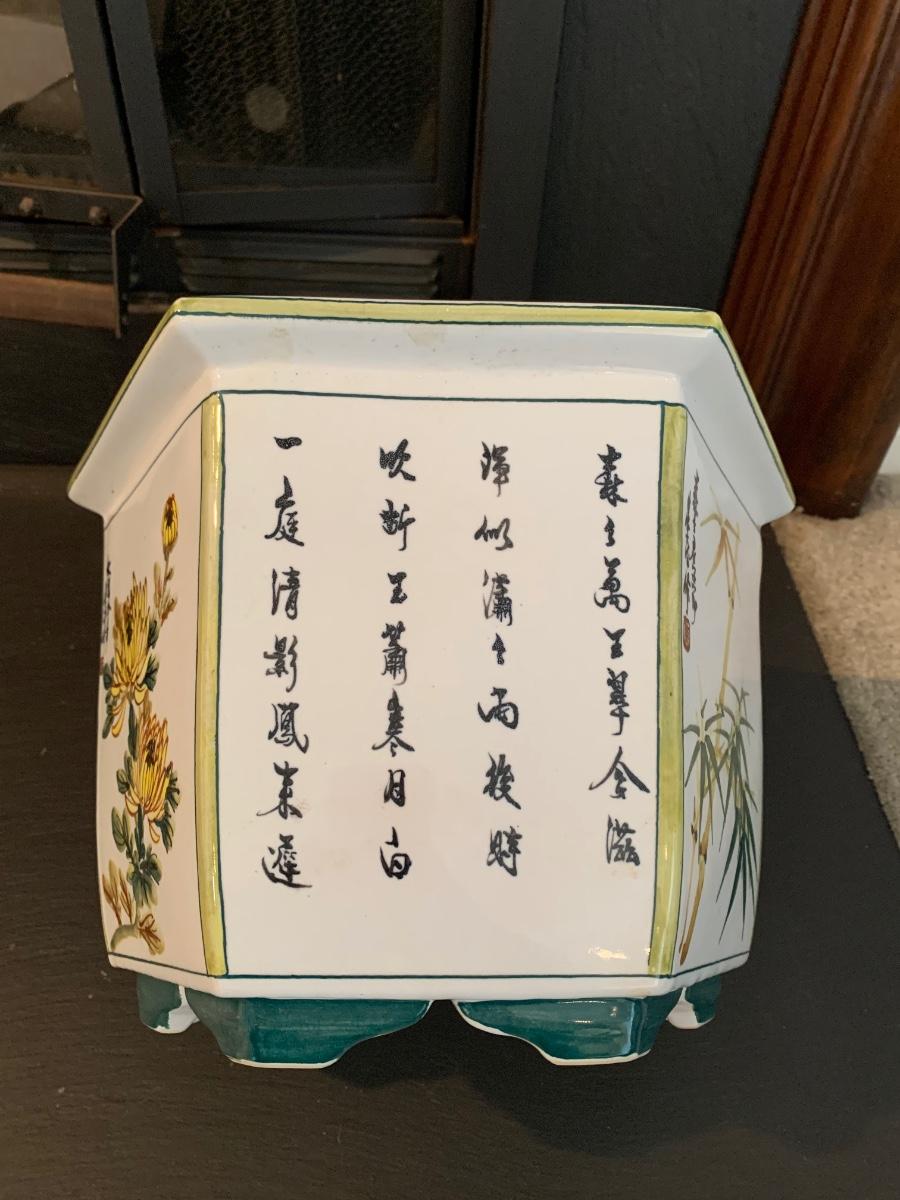 森々萬玉翠含滋
渾似瀟々雨後時
吹斷玉簫寒月白
一庭清影鳳來遲